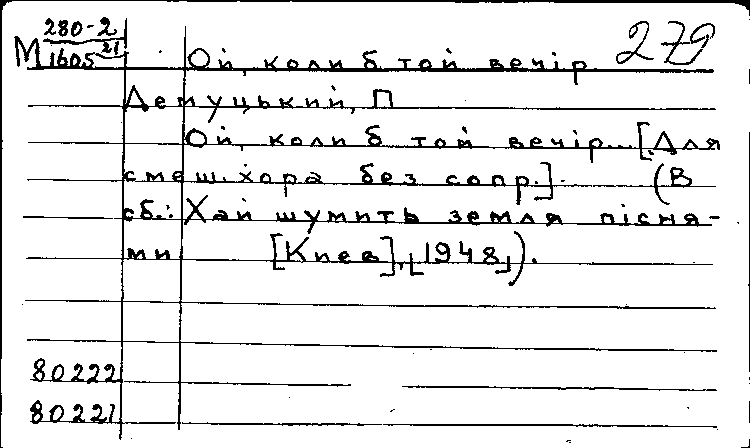 280-2
М 1605 21
279
Ой, коли б той вечір
Демуцький, П
Ой, коли б той вечір... [Для
смеш. хора без сопр.] (В
сб.: Хай шумить земля пісня-
ми [Киев], 1948).
80222
80221